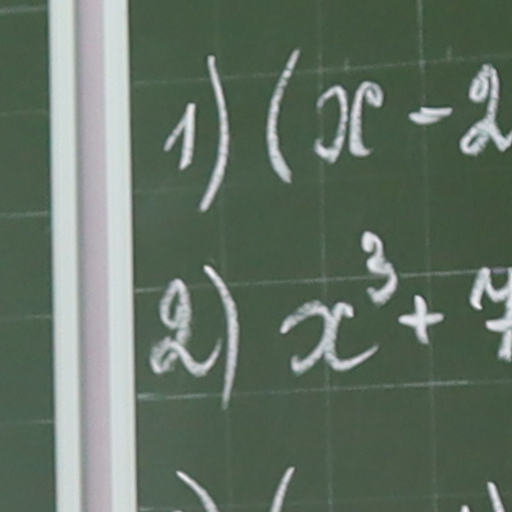 1) (x - 2
2) x³ + 7